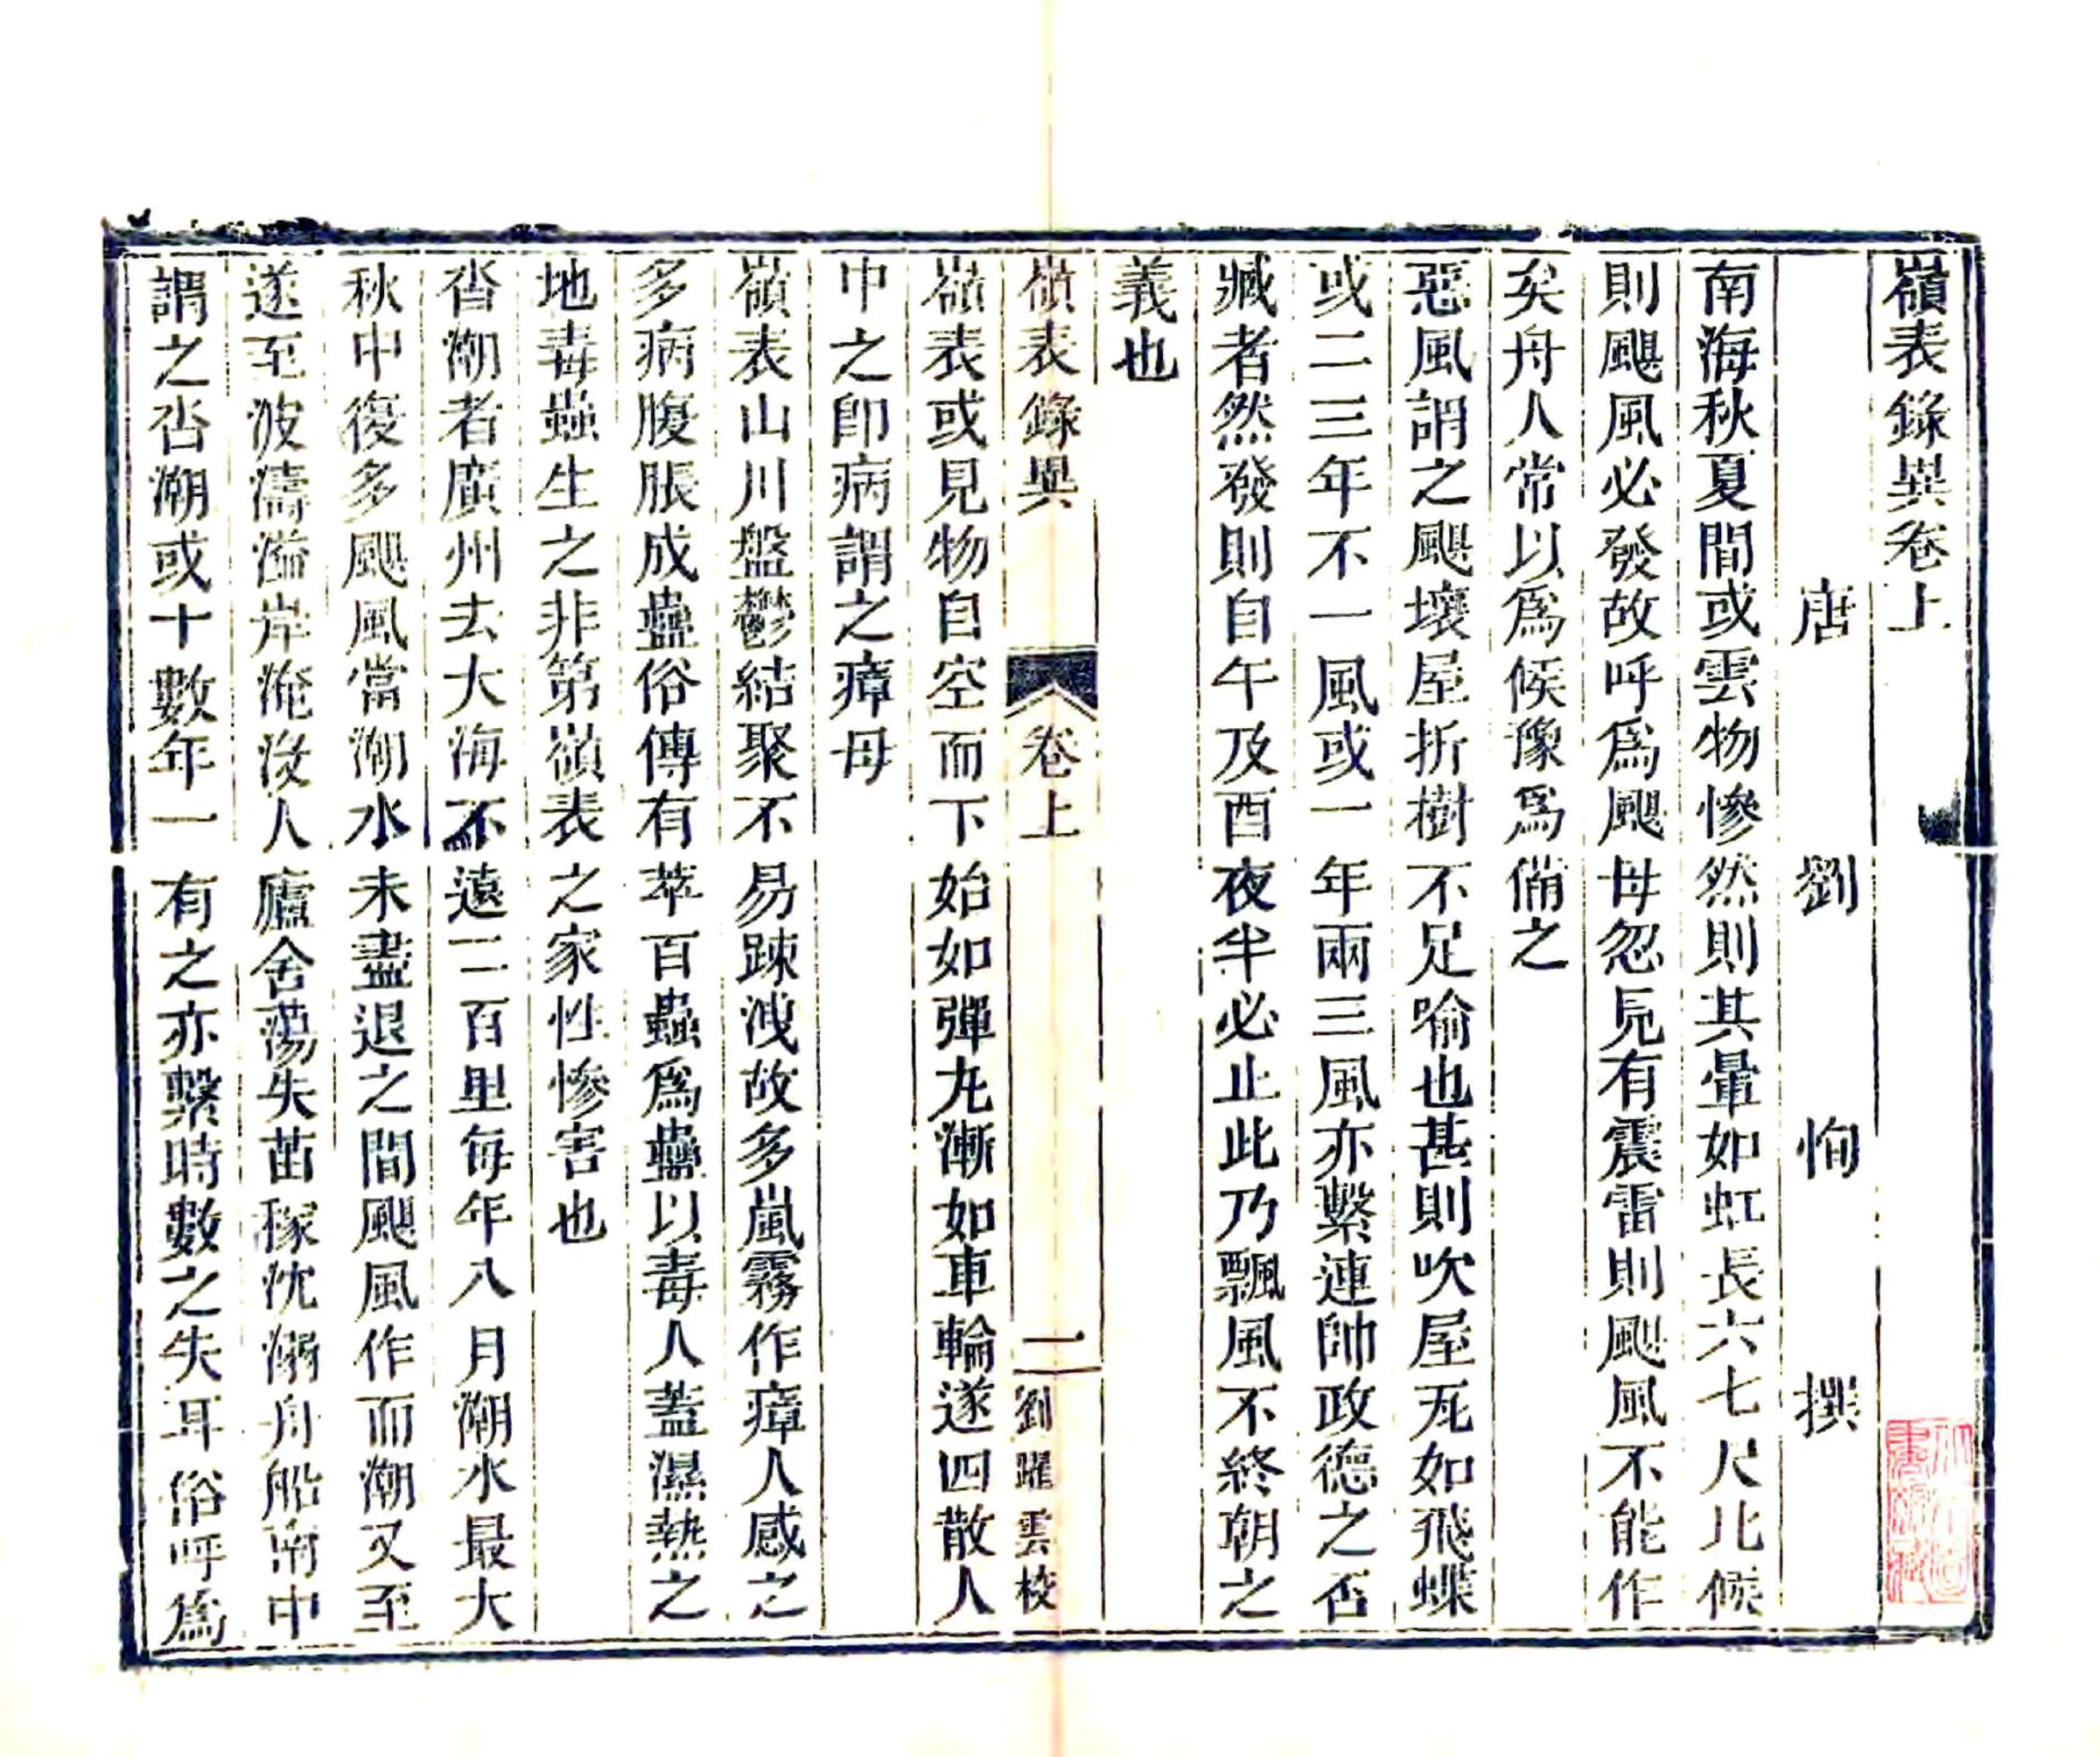 嶺表錄異卷上
唐　劉　恂　撰
南海秋夏間或雲物慘然則其暈如虹長六七尺比候
則颶風必發故呼爲颶母忽見有震雷則颶風不能作
矣舟人常以爲候豫爲備之
惡風謂之颶壞屋折樹不足喻也甚則吹屋瓦如飛蝶
或二三年不一風或一年兩三風亦繫連帥政德之否
臧者然發則自午及酉夜半必止此乃飄風不終朝之
義也
嶺表錄異　卷上　一　劉躍雲校
嶺表或見物自空而下始如彈丸漸如車輪遂四散人
中之卽病謂之瘴母
嶺表山川盤鬱結聚不易踈洩故多嵐霧作瘴人感之
多病腹脹成蠱俗傳有萃百蟲爲蠱以毒人蓋濕熱之
地毒蟲生之非第嶺表之家性慘害也
沓潮者廣州去大海不遠二百里每年八月潮水最大
秋中復多颶風當潮水未盡退之間颶風作而潮又至
遂至波濤溢岸淹沒人廬舍蕩失苗稼沈溺舟船南中
謂之沓潮或十數年一有之亦繫時數之失耳俗呼爲